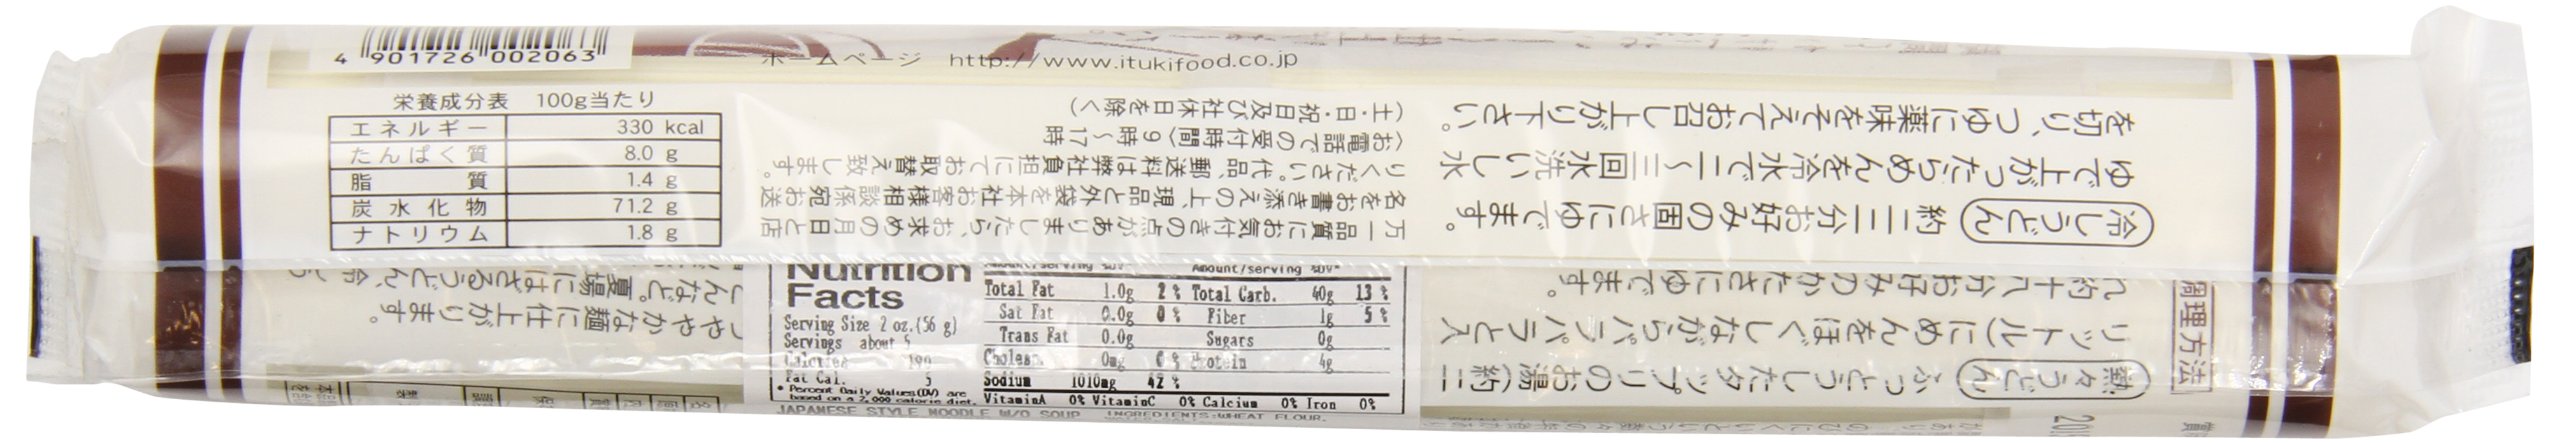 4 901726 002063
ホームページ http://www.itukifood.co.jp
栄養成分表 100g当たり
エネルギー 330 kcal
たんぱく質 8.0 g
脂質 1.4 g
炭水化物 71.2 g
ナトリウム 1.8 g
万一品質にお気付きの点がありましたら、お求めの月日と店
名をお書き添えの上、現品と外袋を本社お客様相談係宛お送
りください。代品、郵送料は弊社負担にてお取替え致します。
(お電話での受付時間)9時〜17時
(土・日・祝日及び社休日を除く)
調理方法
熱々うどん ふっとうしたタップリのお湯(約二
リットル)にめんをほぐしながらパラパラと入
れ約十八分お好みのかたさにゆでます。
冷しうどん 約二二分お好みの固さにゆでます。
ゆで上がったらめんを冷水で二〜三回水洗いし水
を切り、つゆに薬味をそえてお召し上がり下さい。
つややかな麺に仕上がります。
夏場にはざるうどん、冷し
Nutrition Facts
Serving Size 2 oz.(56 g)
Servings about 5
Calories 190
Fat Cal. 5
* Percent Daily Values(DV) are
based on a 2,000 calorie diet.
Amount/serving %DV* Amount/serving %DV*
Total Fat 1.0g 2% Total Carb. 40g 13%
Sat Fat 0.0g 0% Fiber 1g 5%
Trans Fat 0.0g Sugars 0g
Cholest. 0mg 0% Protein 4g
Sodium 1010mg 42%
VitaminA 0% VitaminC 0% Calcium 0% Iron 0%
JAPANESE STYLE NOODLE W/O SOUP INGREDIENTS:WHEAT FLOUR,